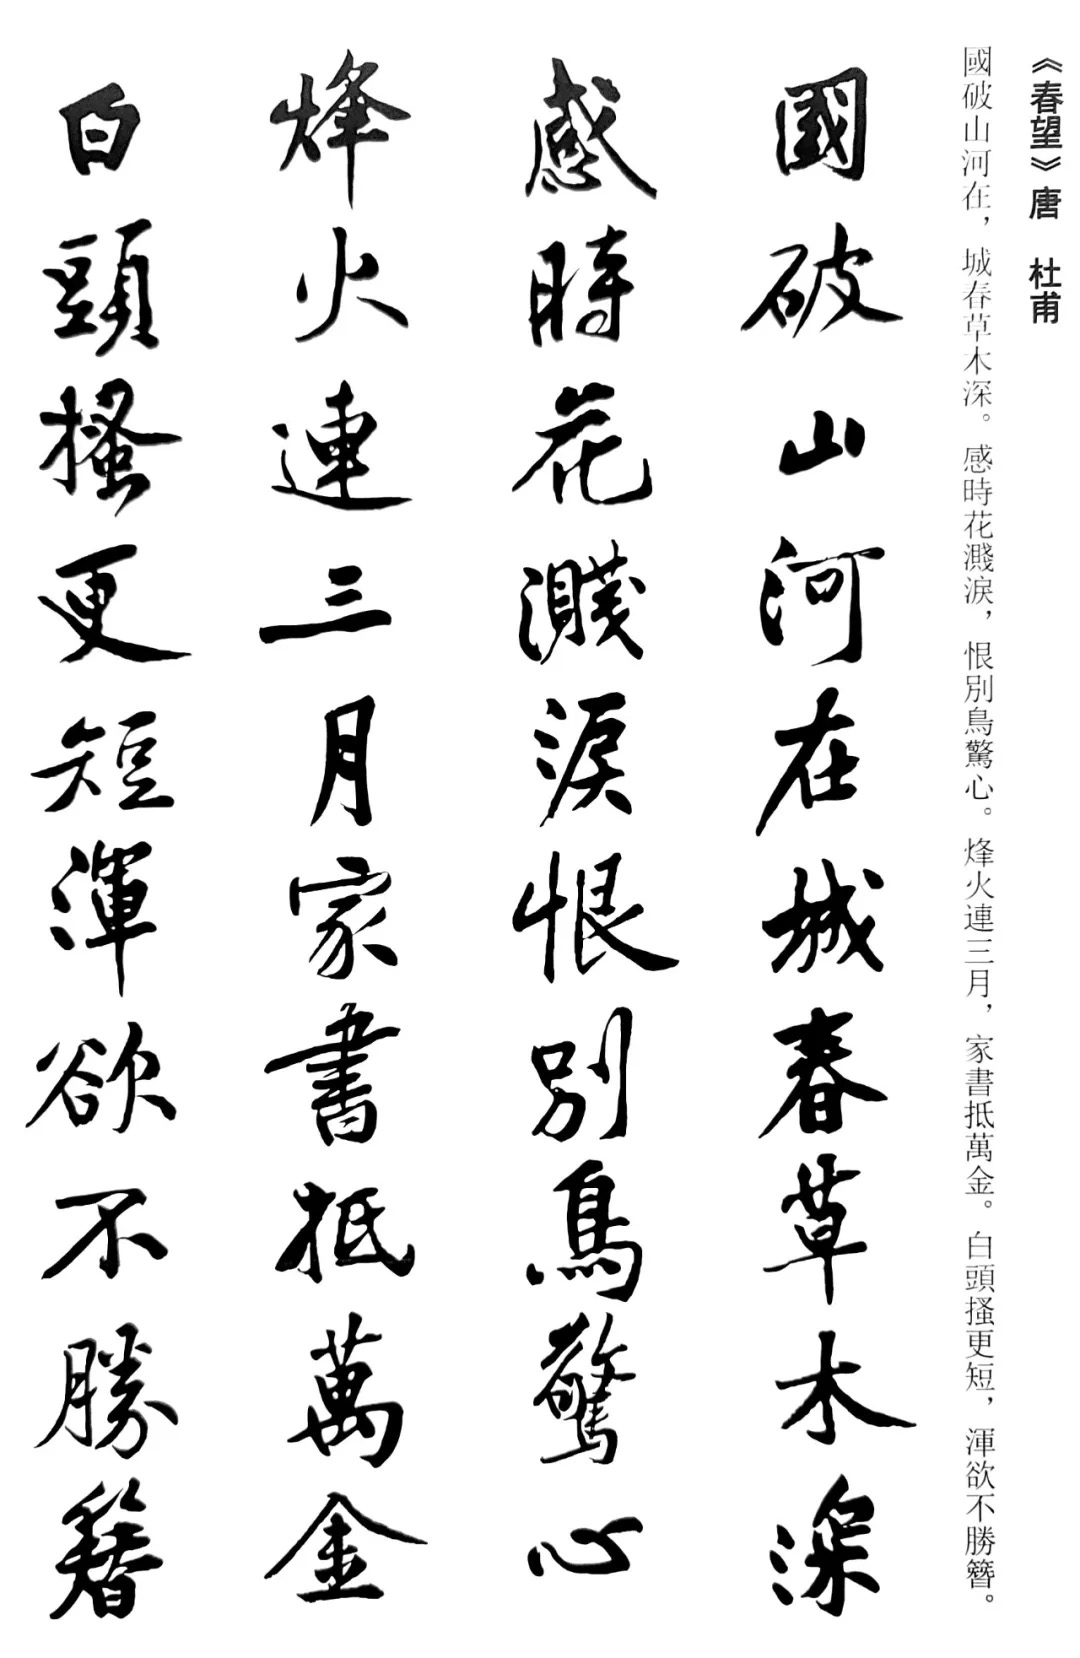 《春望》唐 杜甫
國破山河在，城春草木深。感時花濺淚，恨別鳥驚心。烽火連三月，家書抵萬金。白頭搔更短，渾欲不勝簪。
國破山河在城春草木深
感時花濺淚恨別鳥驚心
烽火連三月家書抵萬金
白頭搔更短渾欲不勝簪